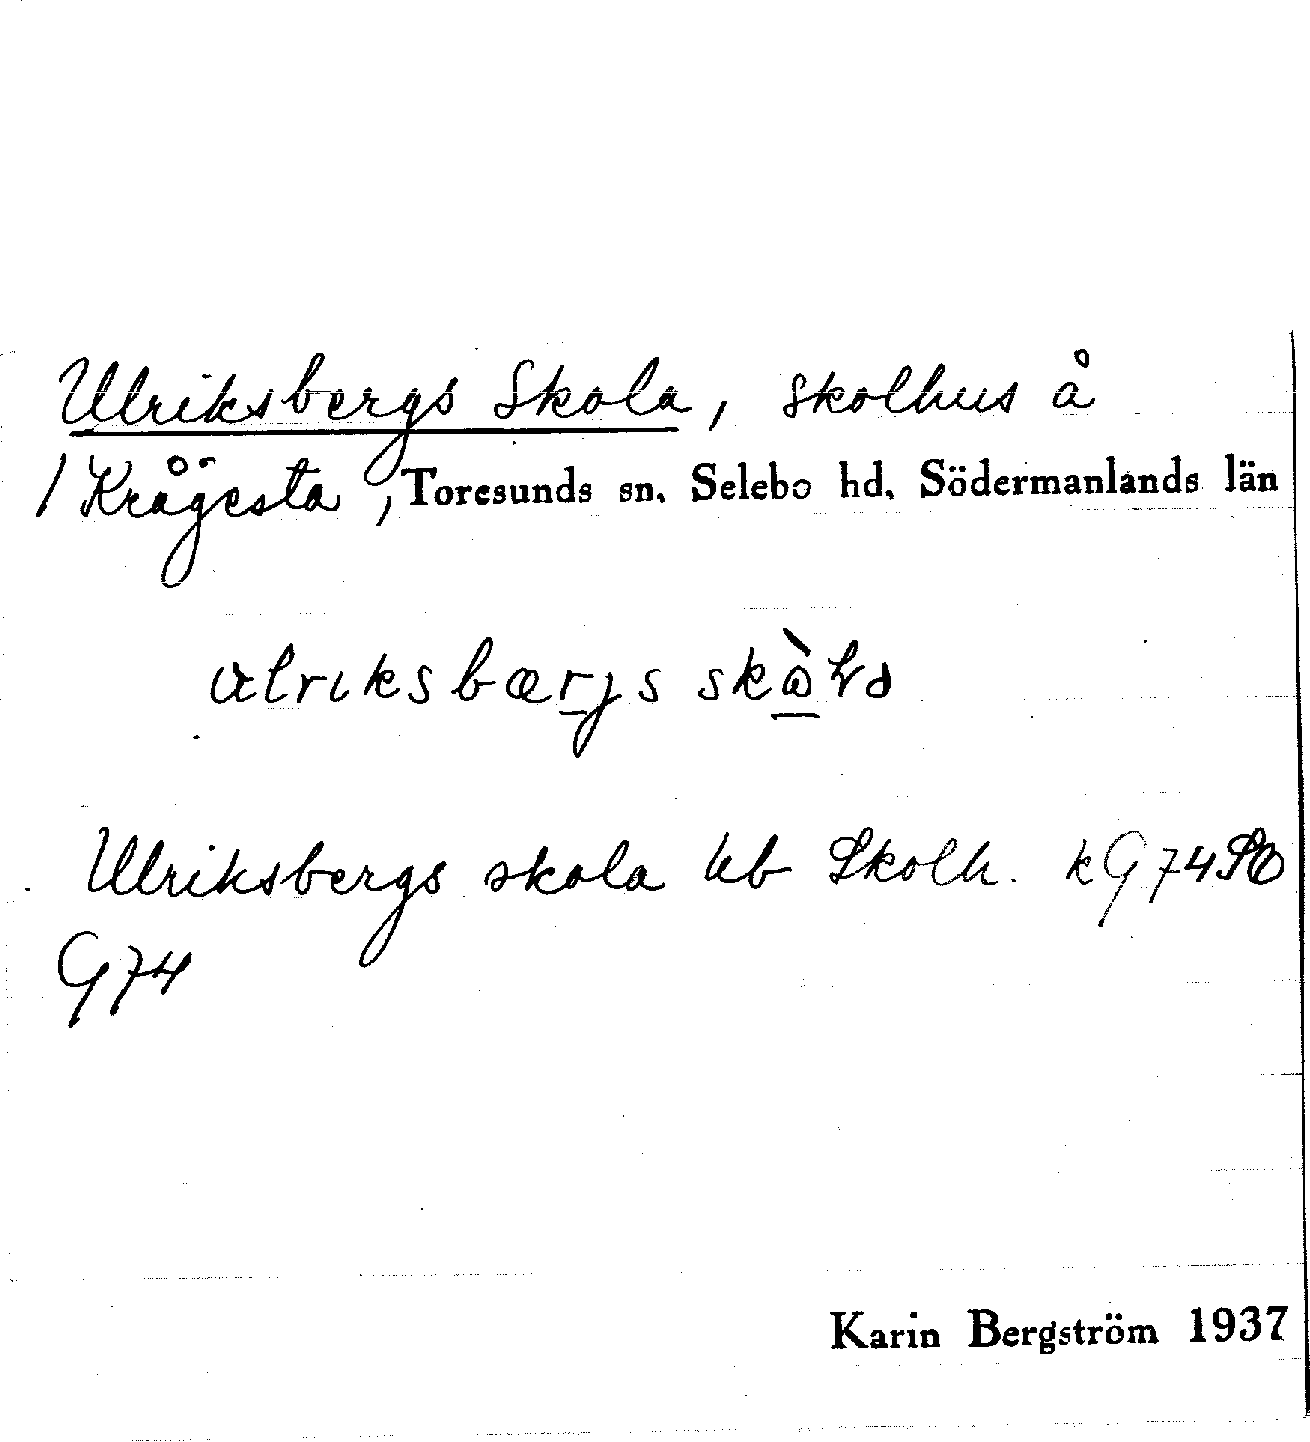 Ulriksbergs Skola, skolhus å
/ Krågesta, Toresunds sn. Selebo hd. Södermanlands län
Ulriksbergs skola Skolh. kG74
G74
Karin Bergström 1937